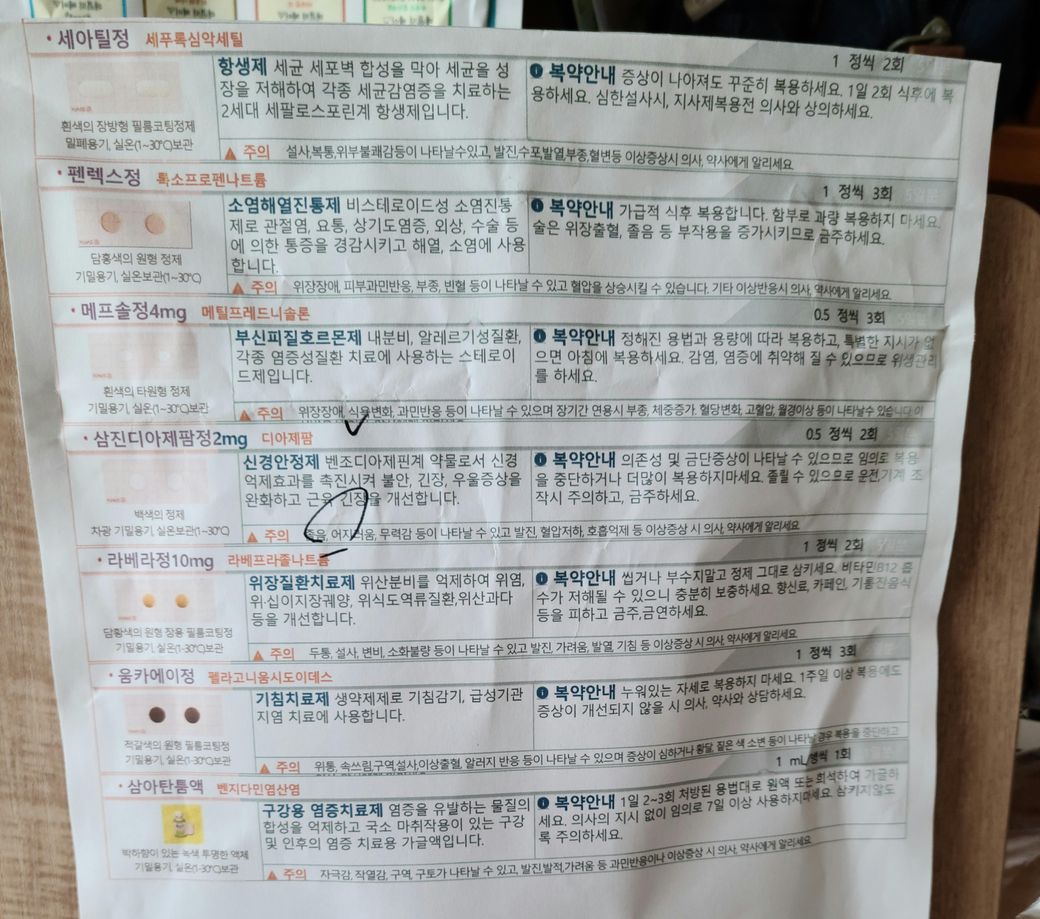 · 세아틸정 세푸록심악세틸 1 정씩 2회
항생제 세균 세포벽 합성을 막아 세균을 성
장을 저해하여 각종 세균감염증을 치료하는
2세대 세팔로스포린계 항생제입니다.
복약안내 증상이 나아져도 꾸준히 복용하세요. 1일 2회 식후에 복
용하세요. 심한설사시, 지사제복용전 의사와 상의하세요.
흰색의 장방형 필름코팅정제
밀폐용기, 실온(1~30℃)보관
주의 설사,복통,위부불쾌감등이 나타날수있고, 발진,수포,발열,부종,혈변등 이상증상시 의사, 약사에게 알리세요
· 펜렉스정 록소프로펜나트륨 1 정씩 3회
소염해열진통제 비스테로이드성 소염진통
제로 관절염, 요통, 상기도염증, 외상, 수술 등
에 의한 통증을 경감시키고 해열, 소염에 사용
합니다.
복약안내 가급적 식후 복용합니다. 함부로 과량 복용하지 마세요.
술은 위장출혈, 졸음 등 부작용을 증가시키므로 금주하세요.
담홍색의 원형 정제
기밀용기, 실온보관(1~30℃)
주의 위장장애, 피부과민반응, 부종, 빈혈 등이 나타날 수 있고 혈압을 상승시킬 수 있습니다. 기타 이상반응시 의사, 약사에게 알리세요
· 메프솔정4mg 메틸프레드니솔론 0.5 정씩 3회
부신피질호르몬제 내분비, 알레르기성질환,
각종 염증성질환 치료에 사용하는 스테로이
드제입니다.
복약안내 정해진 용법과 용량에 따라 복용하고, 특별한 지시가 없
으면 아침에 복용하세요. 감염, 염증에 취약해 질 수 있으므로 위생관리
를 하세요.
흰색의 타원형 정제
기밀용기, 실온(1~30℃)보관
주의 위장장애, 식욕변화, 과민반응 등이 나타날 수 있으며 장기간 연용시 부종, 체중증가. 혈당변화, 고혈압, 월경이상 등이 나타날수 있습니다 이
· 삼진디아제팜정2mg 디아제팜 0.5 정씩 2회
신경안정제 벤조디아제핀계 약물로서 신경
억제효과를 촉진시켜 불안, 긴장, 우울증상을
완화하고 근육 긴장을 개선합니다.
복약안내 의존성 및 금단증상이 나타날 수 있으므로 임의로 복용
을 중단하거나 더많이 복용하지마세요. 졸릴 수 있으므로 운전,기계 조
작시 주의하고, 금주하세요.
백색의 정제
차광 기밀용기, 실온(1~30℃)
주의 졸음, 어지러움, 무력감 등이 나타날 수 있고 발진, 혈압저하, 호흡억제 등 이상증상 시 의사, 약사에게 알리세요
· 라베라정10mg 라베프라졸나트륨 1 정씩 2회
위장질환치료제 위산분비를 억제하여 위염,
위·십이지장궤양, 위식도역류질환,위산과다
등을 개선합니다.
복약안내 씹거나 부수지말고 정제 그대로 삼키세요. 비타민B12 흡
수가 저해될 수 있으니 충분히 보충하세요. 향신료, 카페인, 기름진음식
등을 피하고 금주,금연하세요.
담황색의 원형 장용 필름코팅정
기밀용기, 실온(1-30℃)보관
주의 두통, 설사, 변비, 소화불량 등이 나타날 수 있고 발진, 가려움, 발열, 기침 등 이상증상 시 의사, 약사에게 알리세요
· 움카에이정 펠라고니움시도이데스 1 정씩 3회
기침치료제 생약제제로 기침감기, 급성기관
지염 치료에 사용합니다.
복약안내 누워있는 자세로 복용하지 마세요. 1주일 이상 복용에도
증상이 개선되지 않을 시 의사, 약사와 상담하세요.
적갈색의 원형 필름코팅정
기밀용기, 실온(1~30℃)보관
주의 위통, 속쓰림,구역,설사,이상출혈, 알러지 반응 등이 나타날 수 있으며 증상이 심하거나 황달, 짙은 색 소변 등이 나타날 경우 복용을 중단하고
· 삼아탄툼액 벤지다민염산염 1 mL/병씩 1회
구강용 염증치료제 염증을 유발하는 물질의
합성을 억제하고 국소 마취작용이 있는 구강
및 인후의 염증 치료용 가글액입니다.
복약안내 1일 2~3회 처방된 용법대로 원액 또는 희석하여 가글하
세요. 의사의 지시 없이 임의로 7일 이상 사용하지마세요. 삼키지않도
록 주의하세요.
박하향이 있는 녹색 투명한 액체
기밀용기, 실온(1-30℃)보관
주의 자극감, 작열감, 구역, 구토가 나타날 수 있고, 발진,발적,가려움 등 과민반응이나 이상증상 시 의사, 약사에게 알리세요